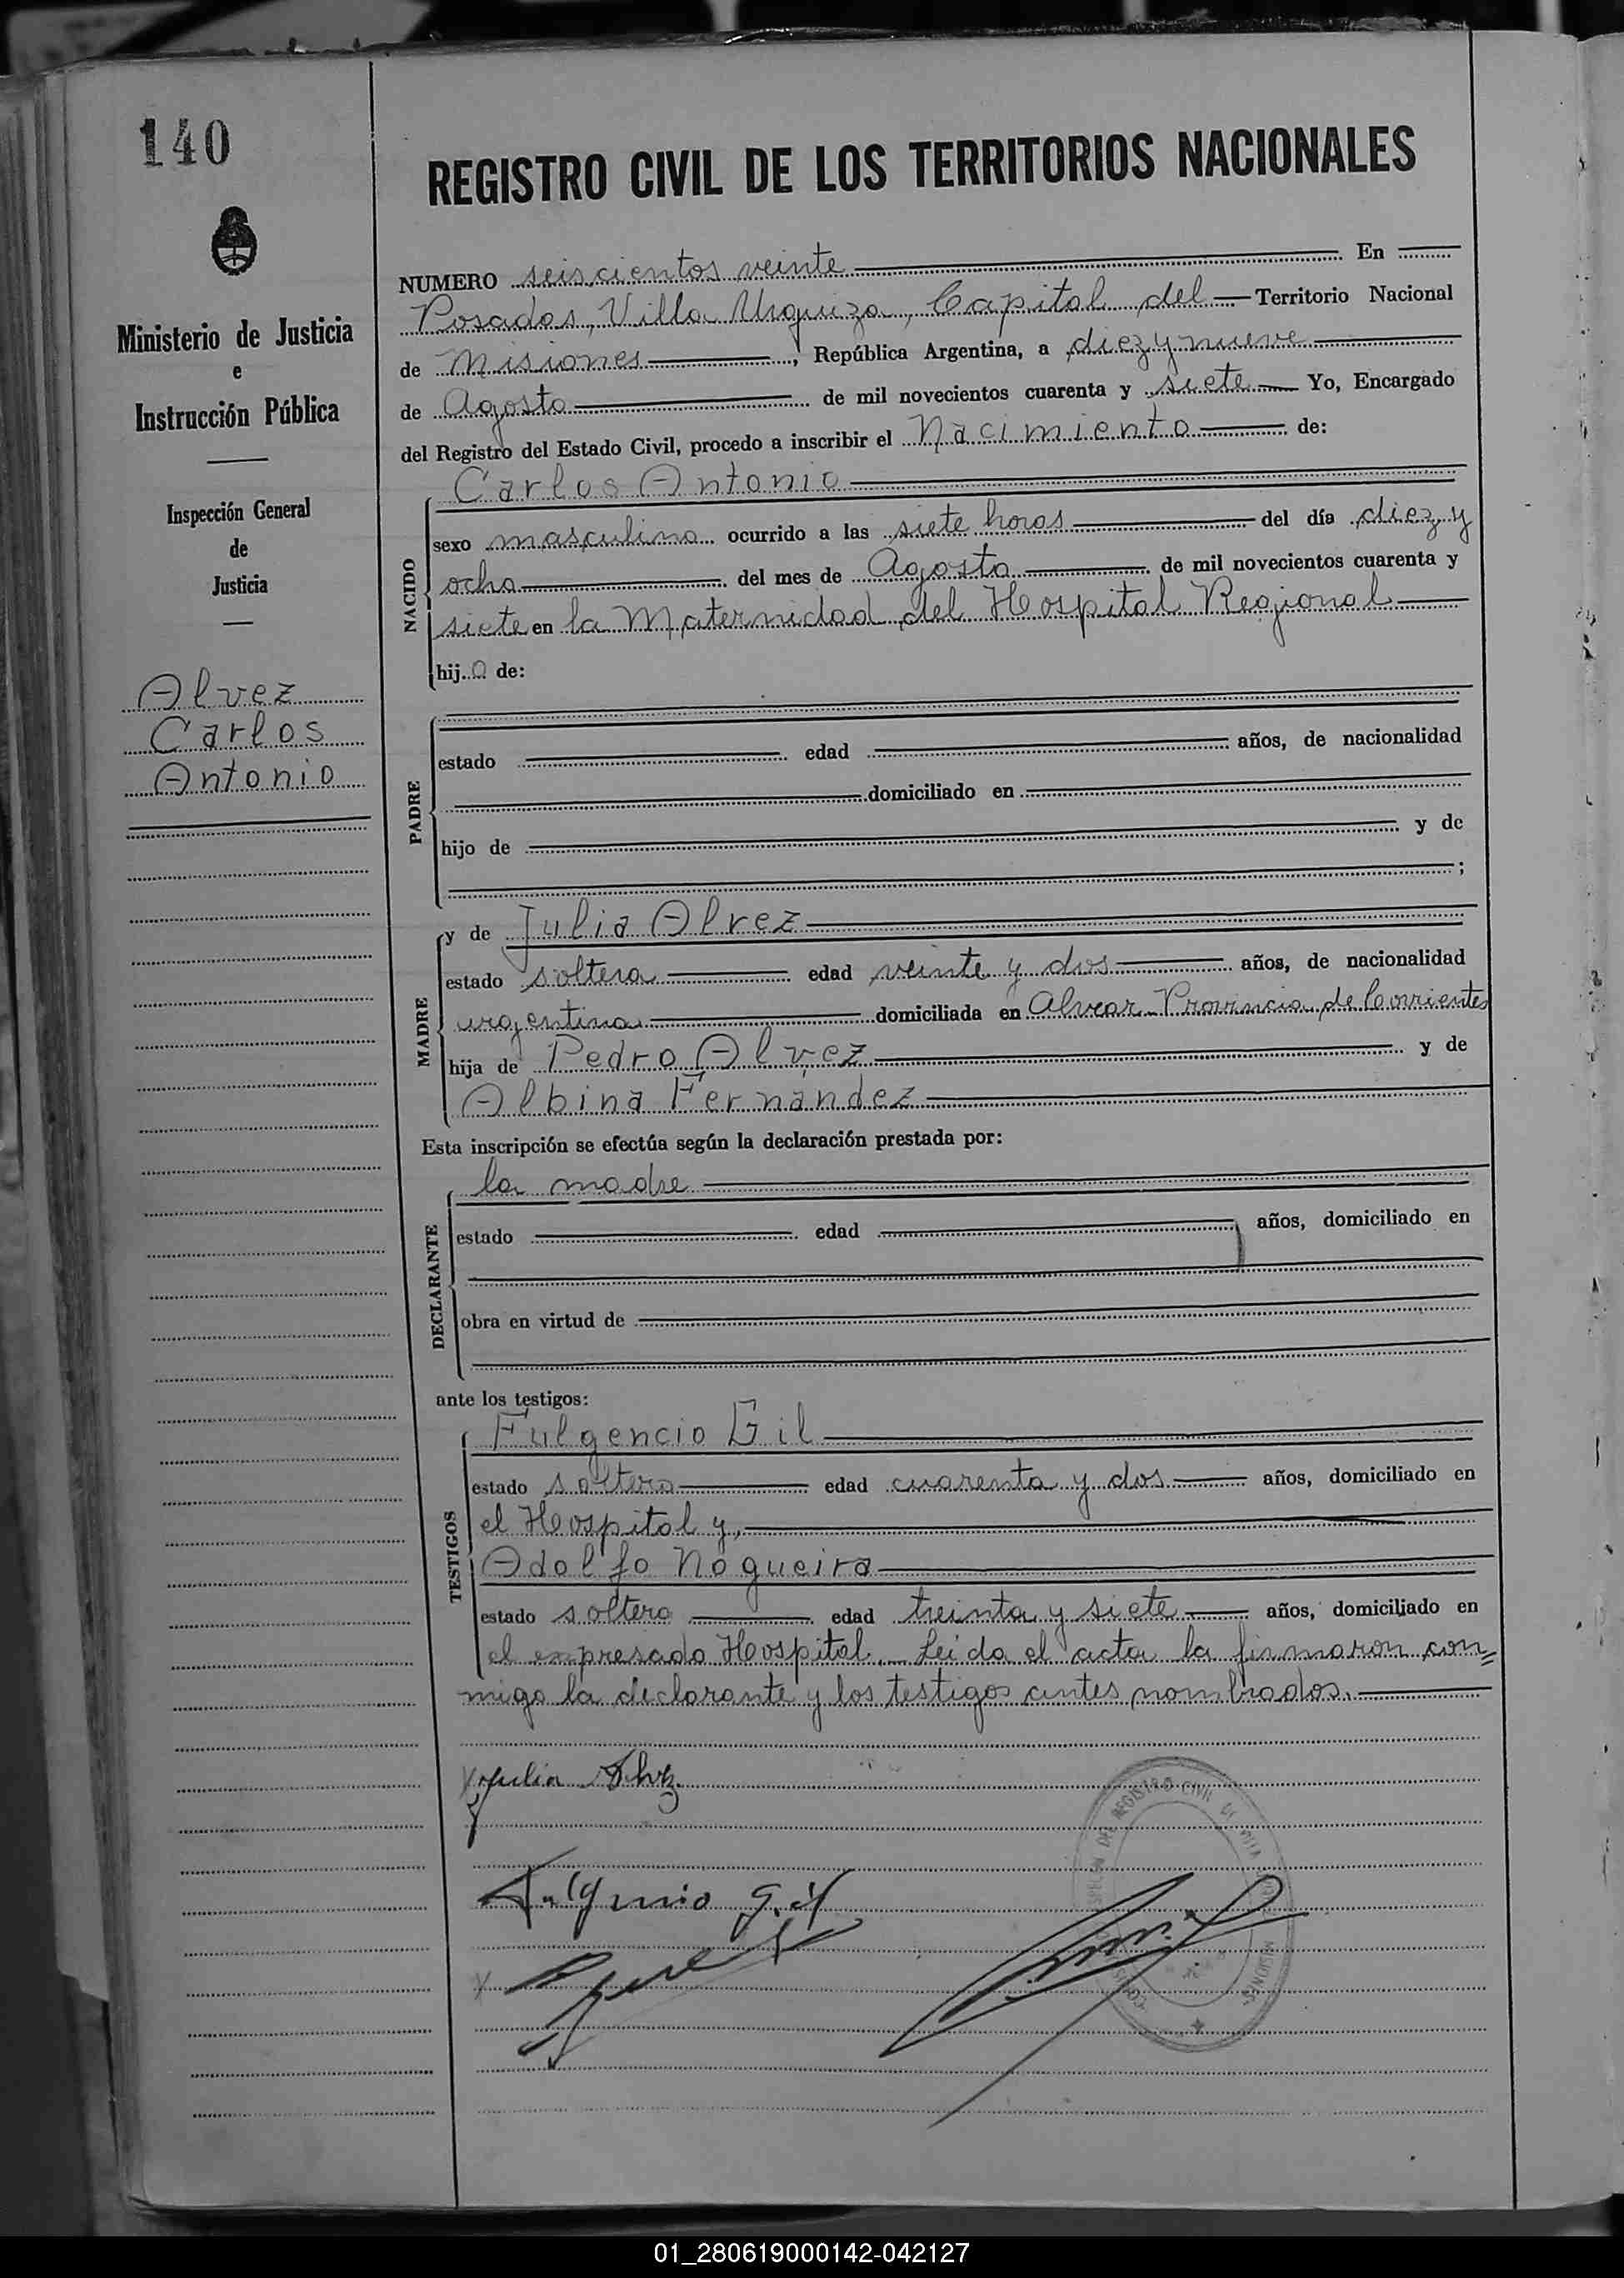 140
REGISTRO CIVIL DE LOS TERRITORIOS NACIONALES
Ministerio de Justicia
e
Instrucción Pública
Inspección General
de
Justicia
Alvez
Carlos
Antonio
NUMERO seiscientos veinte En
Posadas, Villa Urquiza, Capital del Territorio Nacional
de Misiones, República Argentina, a diez y nueve
de Agosto de mil novecientos cuarenta y siete Yo, Encargado
del Registro del Estado Civil, procedo a inscribir el Nacimiento de:
NACIDO
Carlos Antonio
sexo masculino ocurrido a las siete horas del día diez y
ocho del mes de Agosto de mil novecientos cuarenta y
siete en la Maternidad del Hospital Regional
hijo de:
PADRE
estado edad años, de nacionalidad
domiciliado en
hijo de y de
;
MADRE
y de Julia Alvez
estado soltera edad veinte y dos años, de nacionalidad
argentina domiciliada en Alvear Provincia de Corrientes
hija de Pedro Alvez y de
Albina Fernández
Esta inscripción se efectúa según la declaración prestada por:
DECLARANTE
la madre
estado edad años, domiciliado en
obra en virtud de
ante los testigos:
TESTIGOS
Fulgencio Gil
estado soltero edad cuarenta y dos años, domiciliado en
el Hospital y,
Adolfo Nogueira
estado soltero edad treinta y siete años, domiciliado en
el expresado Hospital. Leida el acta la firmaron con=
migo la declarante y los testigos antes nombrados.
Julia Alvez
Fulgencio Gil
DEL REGISTRO CIVIL DE VILLA MISIONES
01_280619000142-042127